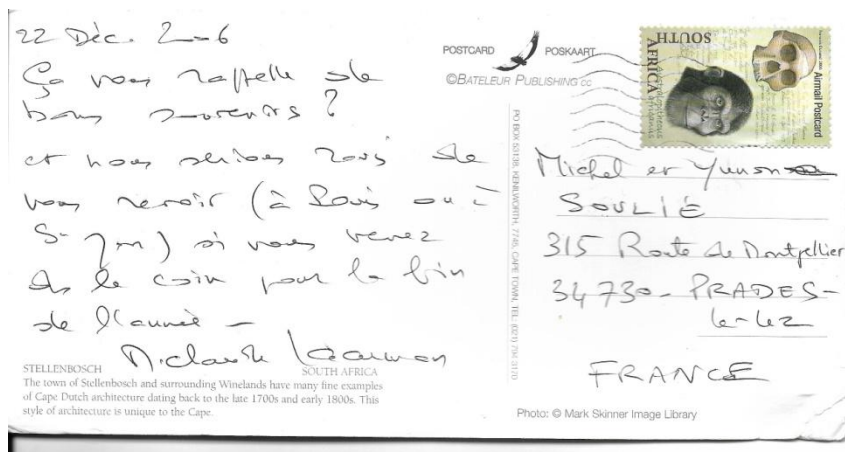 22 Déc. 2006
Ça vous rappelle de
bons souvenirs ?
et nous serions ravis de
vous revoir (à Paris ou à
St Jm) si vous venez
ds le coin pour la fin
de l'année -
STELLENBOSCH
SOUTH AFRICA
The town of Stellenbosch and surrounding Winelands have many fine examples
of Cape Dutch architecture dating back to the late 1700s and early 1800s. This
style of architecture is unique to the Cape.
POSTCARD
POSKAART
©BATELEUR PUBLISHING cc
PO BOX 53138, KENILWORTH, 7745, CAPE TOWN, TEL. (021)
SOUTH
AFRICA
Australopithecus
africanus
Airmail Postcard
Michel et
SOULIÉ
315 Route de Montpellier
34730 - PRADES-
le-Lez
FRANCE
Photo: © Mark Skinner Image Library